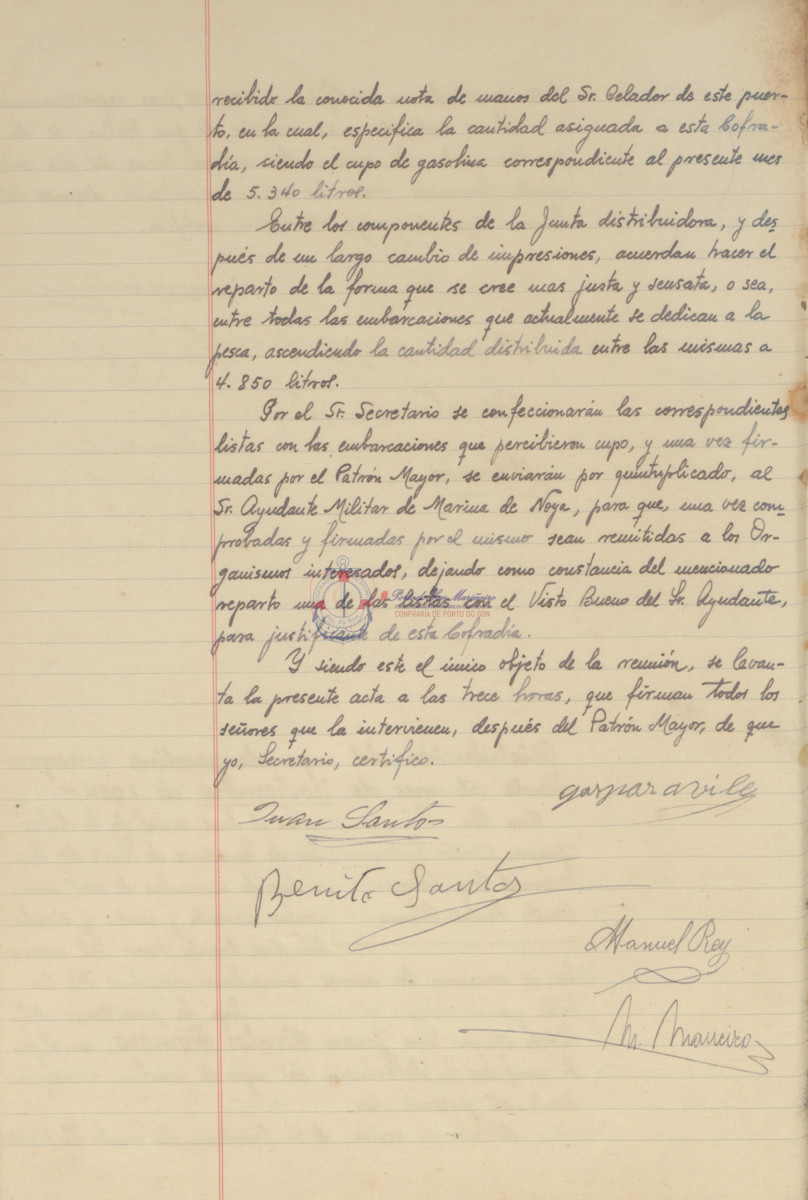 recibido la conocida nota de manos del Sr. Celador de este puer-
to, en la cual, especifica la cantidad asignada a esta Cofra-
día, siendo el cupo de gasolina correspondiente al presente mes
de 5.340 litros.
Entre los componentes de la Junta distribuidora, y des-
pués de un largo cambio de impresiones, acuerdan hacer el
reparto de la forma que se cree mas justa y sensata, o sea,
entre todas las embarcaciones que actualmente se dedican a la
pesca, ascendiendo la cantidad distribuida entre las mismas a
4.850 litros.
Por el Sr. Secretario se confeccionarán las correspondientes
listas con las embarcaciones que percibieron cupo, y una vez fir-
madas por el Patrón Mayor, se enviarán por quintuplicado, al
Sr. Ayudante Militar de Marina de Noya, para que, una vez com-
probadas y firmadas por el mismo sean remitidas a los Or-
ganismos interesados, dejando como constancia del mencionado
reparto una de las listas con el Visto Bueno del Sr. Ayudante,
CONFRARÍA DE PORTO DO SON
para justificante de esta Cofradía.
Y siendo este el único objeto de la reunión, se levan-
ta la presente acta a las trece horas, que firman todos los
señores que la intervienen, después del Patrón Mayor, de que
yo, Secretario, certifico.
gaspar avile
Juan Santos
Benito Santos
Manuel Rey
M. Maneiro